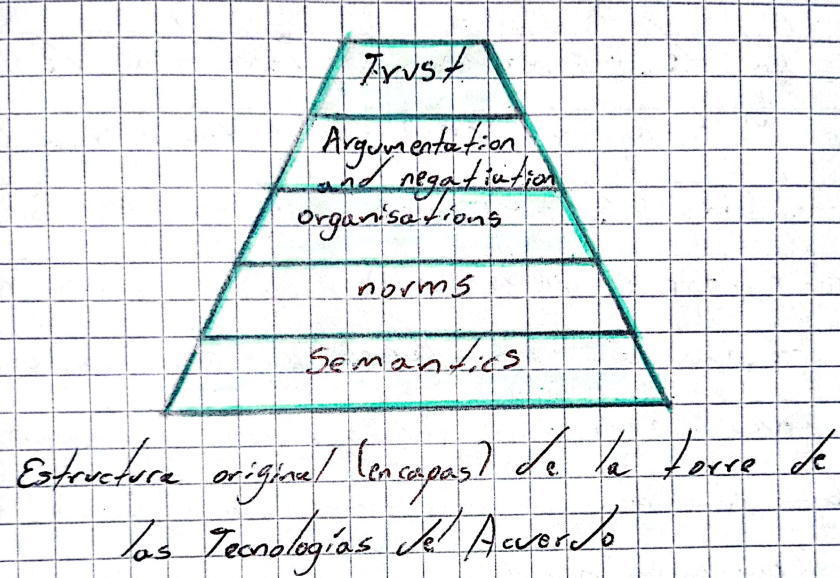 Trust
Argumentation
and negatiation
organisations
norms
Semantics
Estructura original (en capas) de la torre de
las Tecnologías del Acuerdo